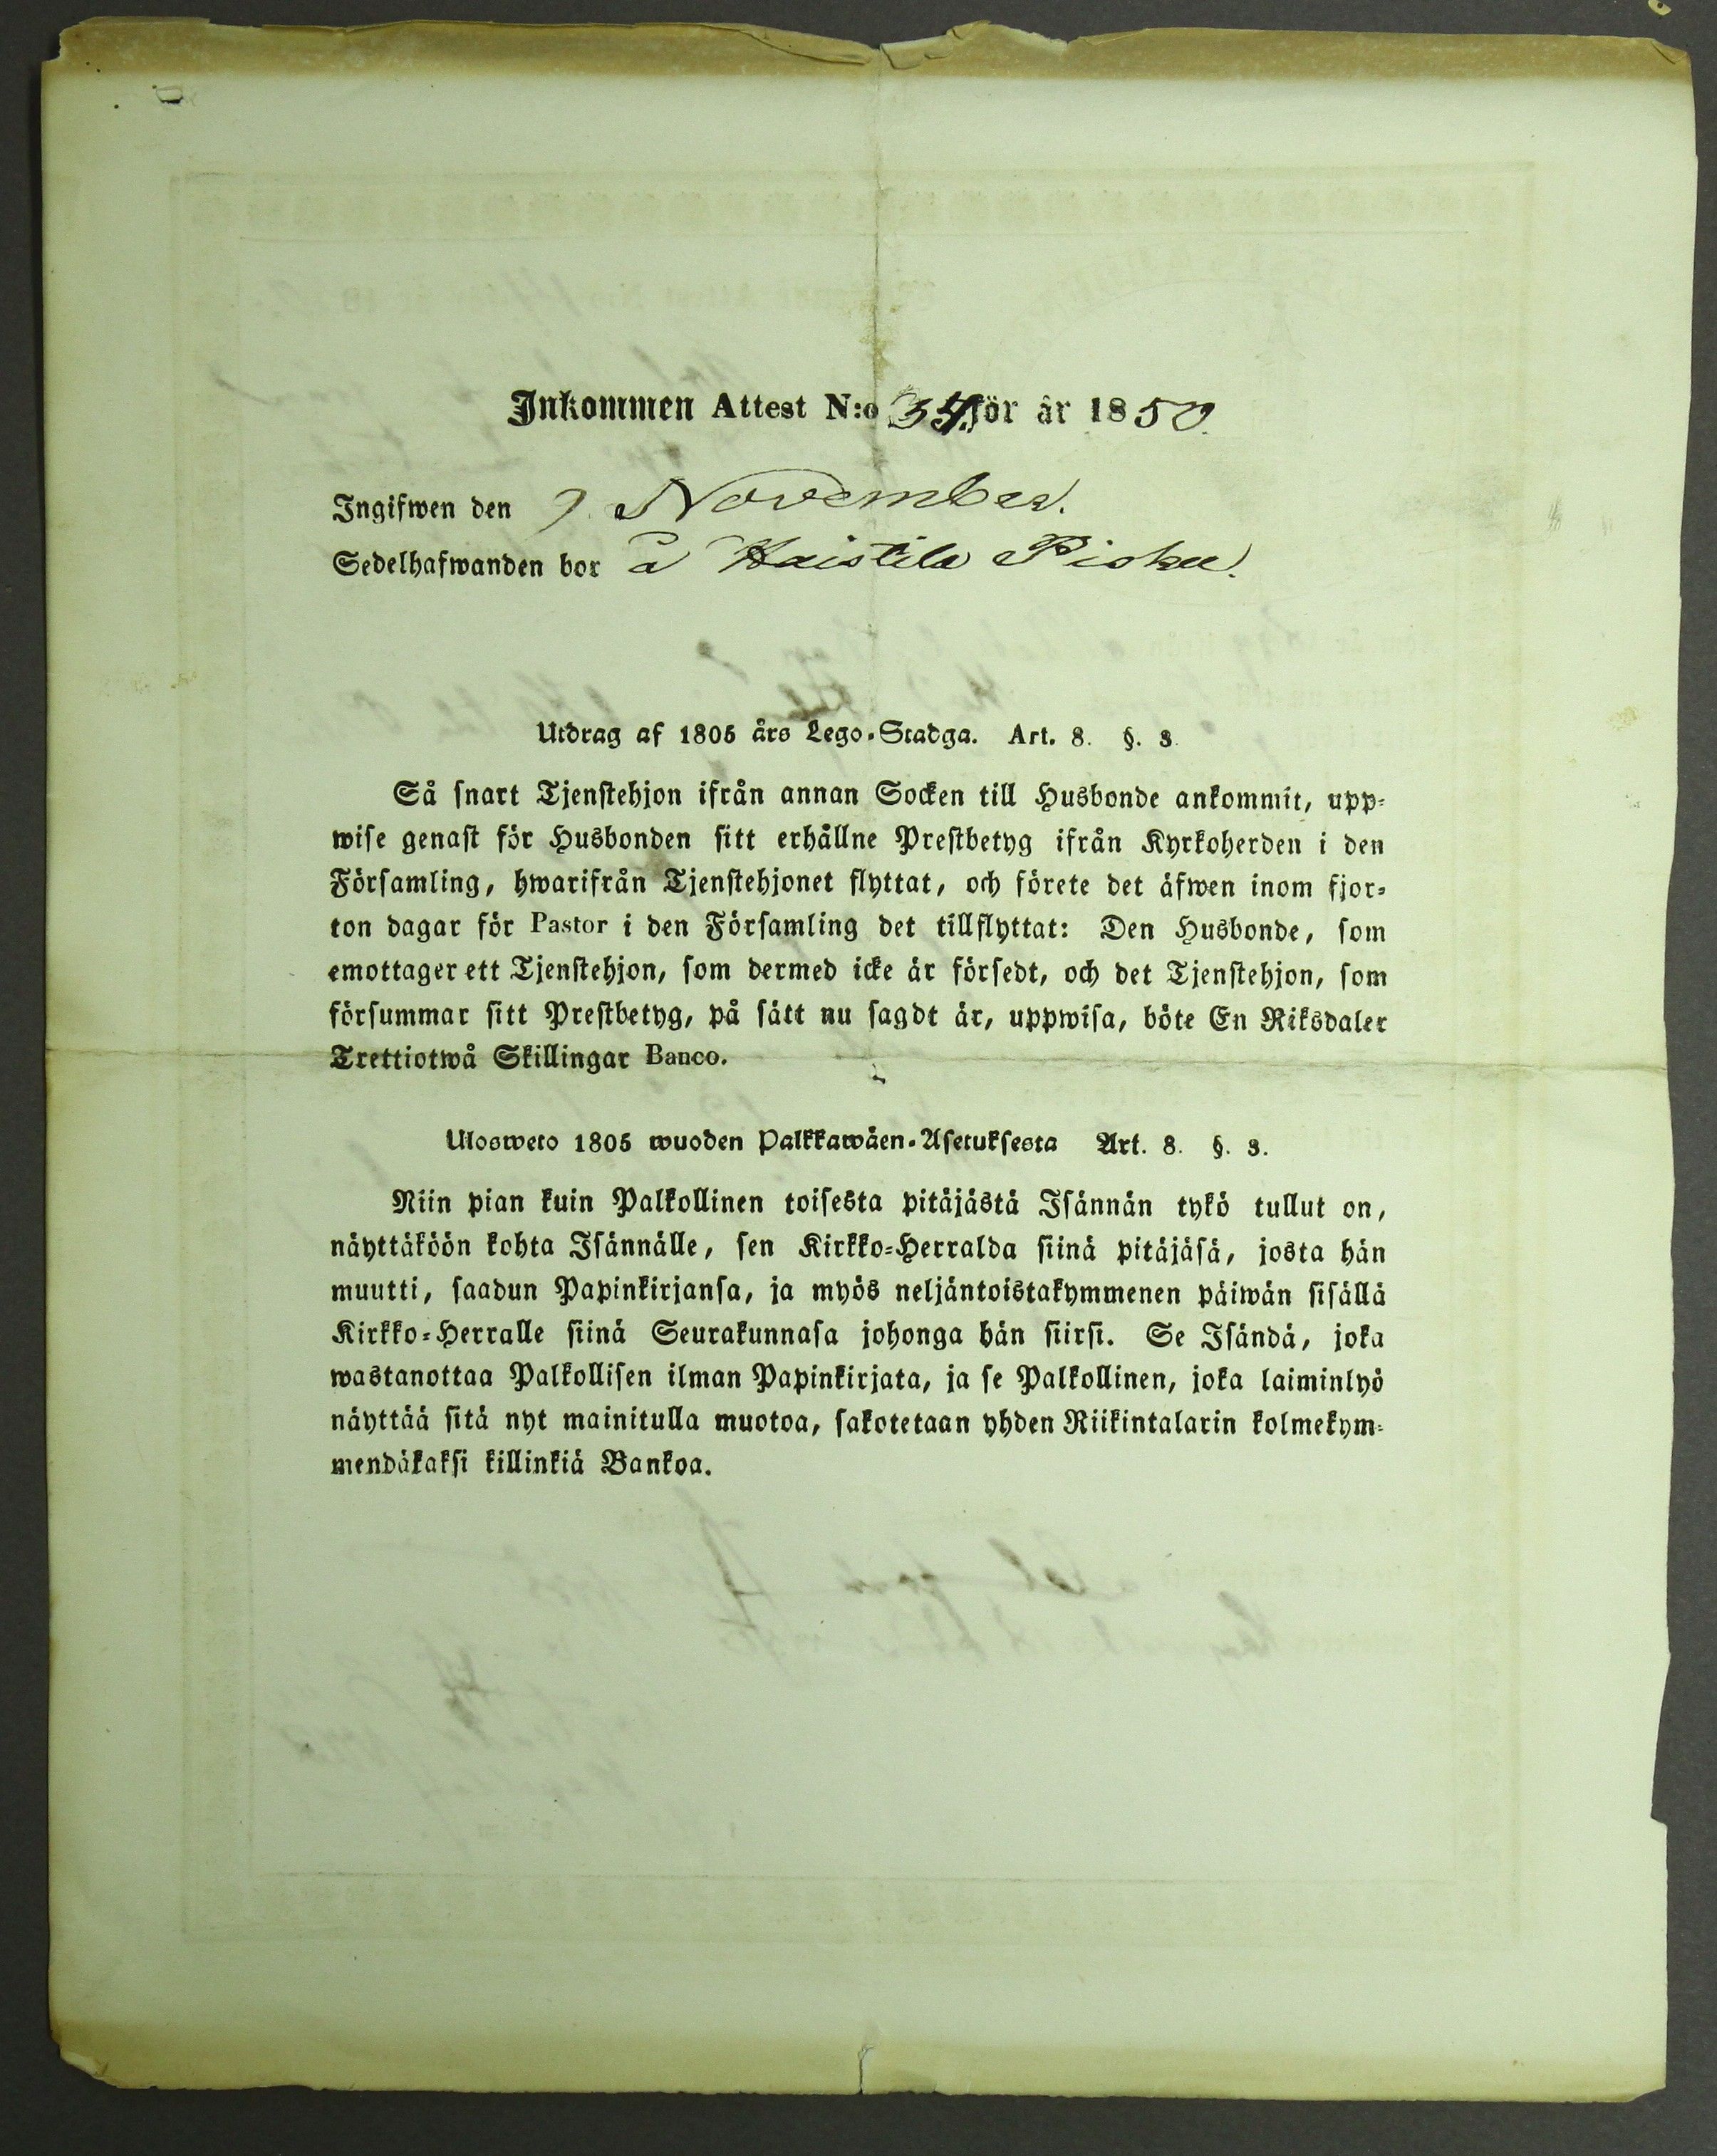 Inkommen Attest N:o 34. för år 1850.
Ingifwen den 9 November.
Sedelhafwanden bor å Haistila Pisku.
Utdrag af 1805 års Lego-Stadga. Art. 8. §. 3.
Så snart Tjenstehjon ifrån annan Socken till Husbonde ankommit, upp-
wise genast för Husbonden sitt erhållne Prestbetyg ifrån Kyrkoherden i den
Församling, hwarifrån Tjenstehjonet flyttat, och förete det äfwen inom fjor-
ton dagar för Pastor i den Församling det tillflyttat: Den Husbonde, som
emottager ett Tjenstehjon, som dermed icke är försedt, och det Tjenstehjon, som
försummar sitt Prestbetyg, på sätt nu sagdt är, uppwisa, böte En Riksdaler
Trettiotwå Skillingar Banco.
Ulosweto 1805 wuoden Palkkawäen-Asetuksesta Art. 8. §. 3.
Niin pian kuin Palkollinen toisesta pitäjästä Isännän tykö tullut on,
näyttäköön kohta Isännälle, sen Kirkko-Herralda siinä pitäjäsä, josta hän
muutti, saadun Papinkirjansa, ja myös neljäntoistakymmenen päiwän sisällä
Kirkko-Herralle siinä Seurakunnasa johonga hän siirsi. Se Isändä, joka
wastanottaa Palkollisen ilman Papinkirjata, ja se Palkollinen, joka laiminlyö
näyttää sitä nyt mainitulla muotoa, sakotetaan yhden Riikintalarin kolmekym-
mendäkaksi killinkiä Bankoa.